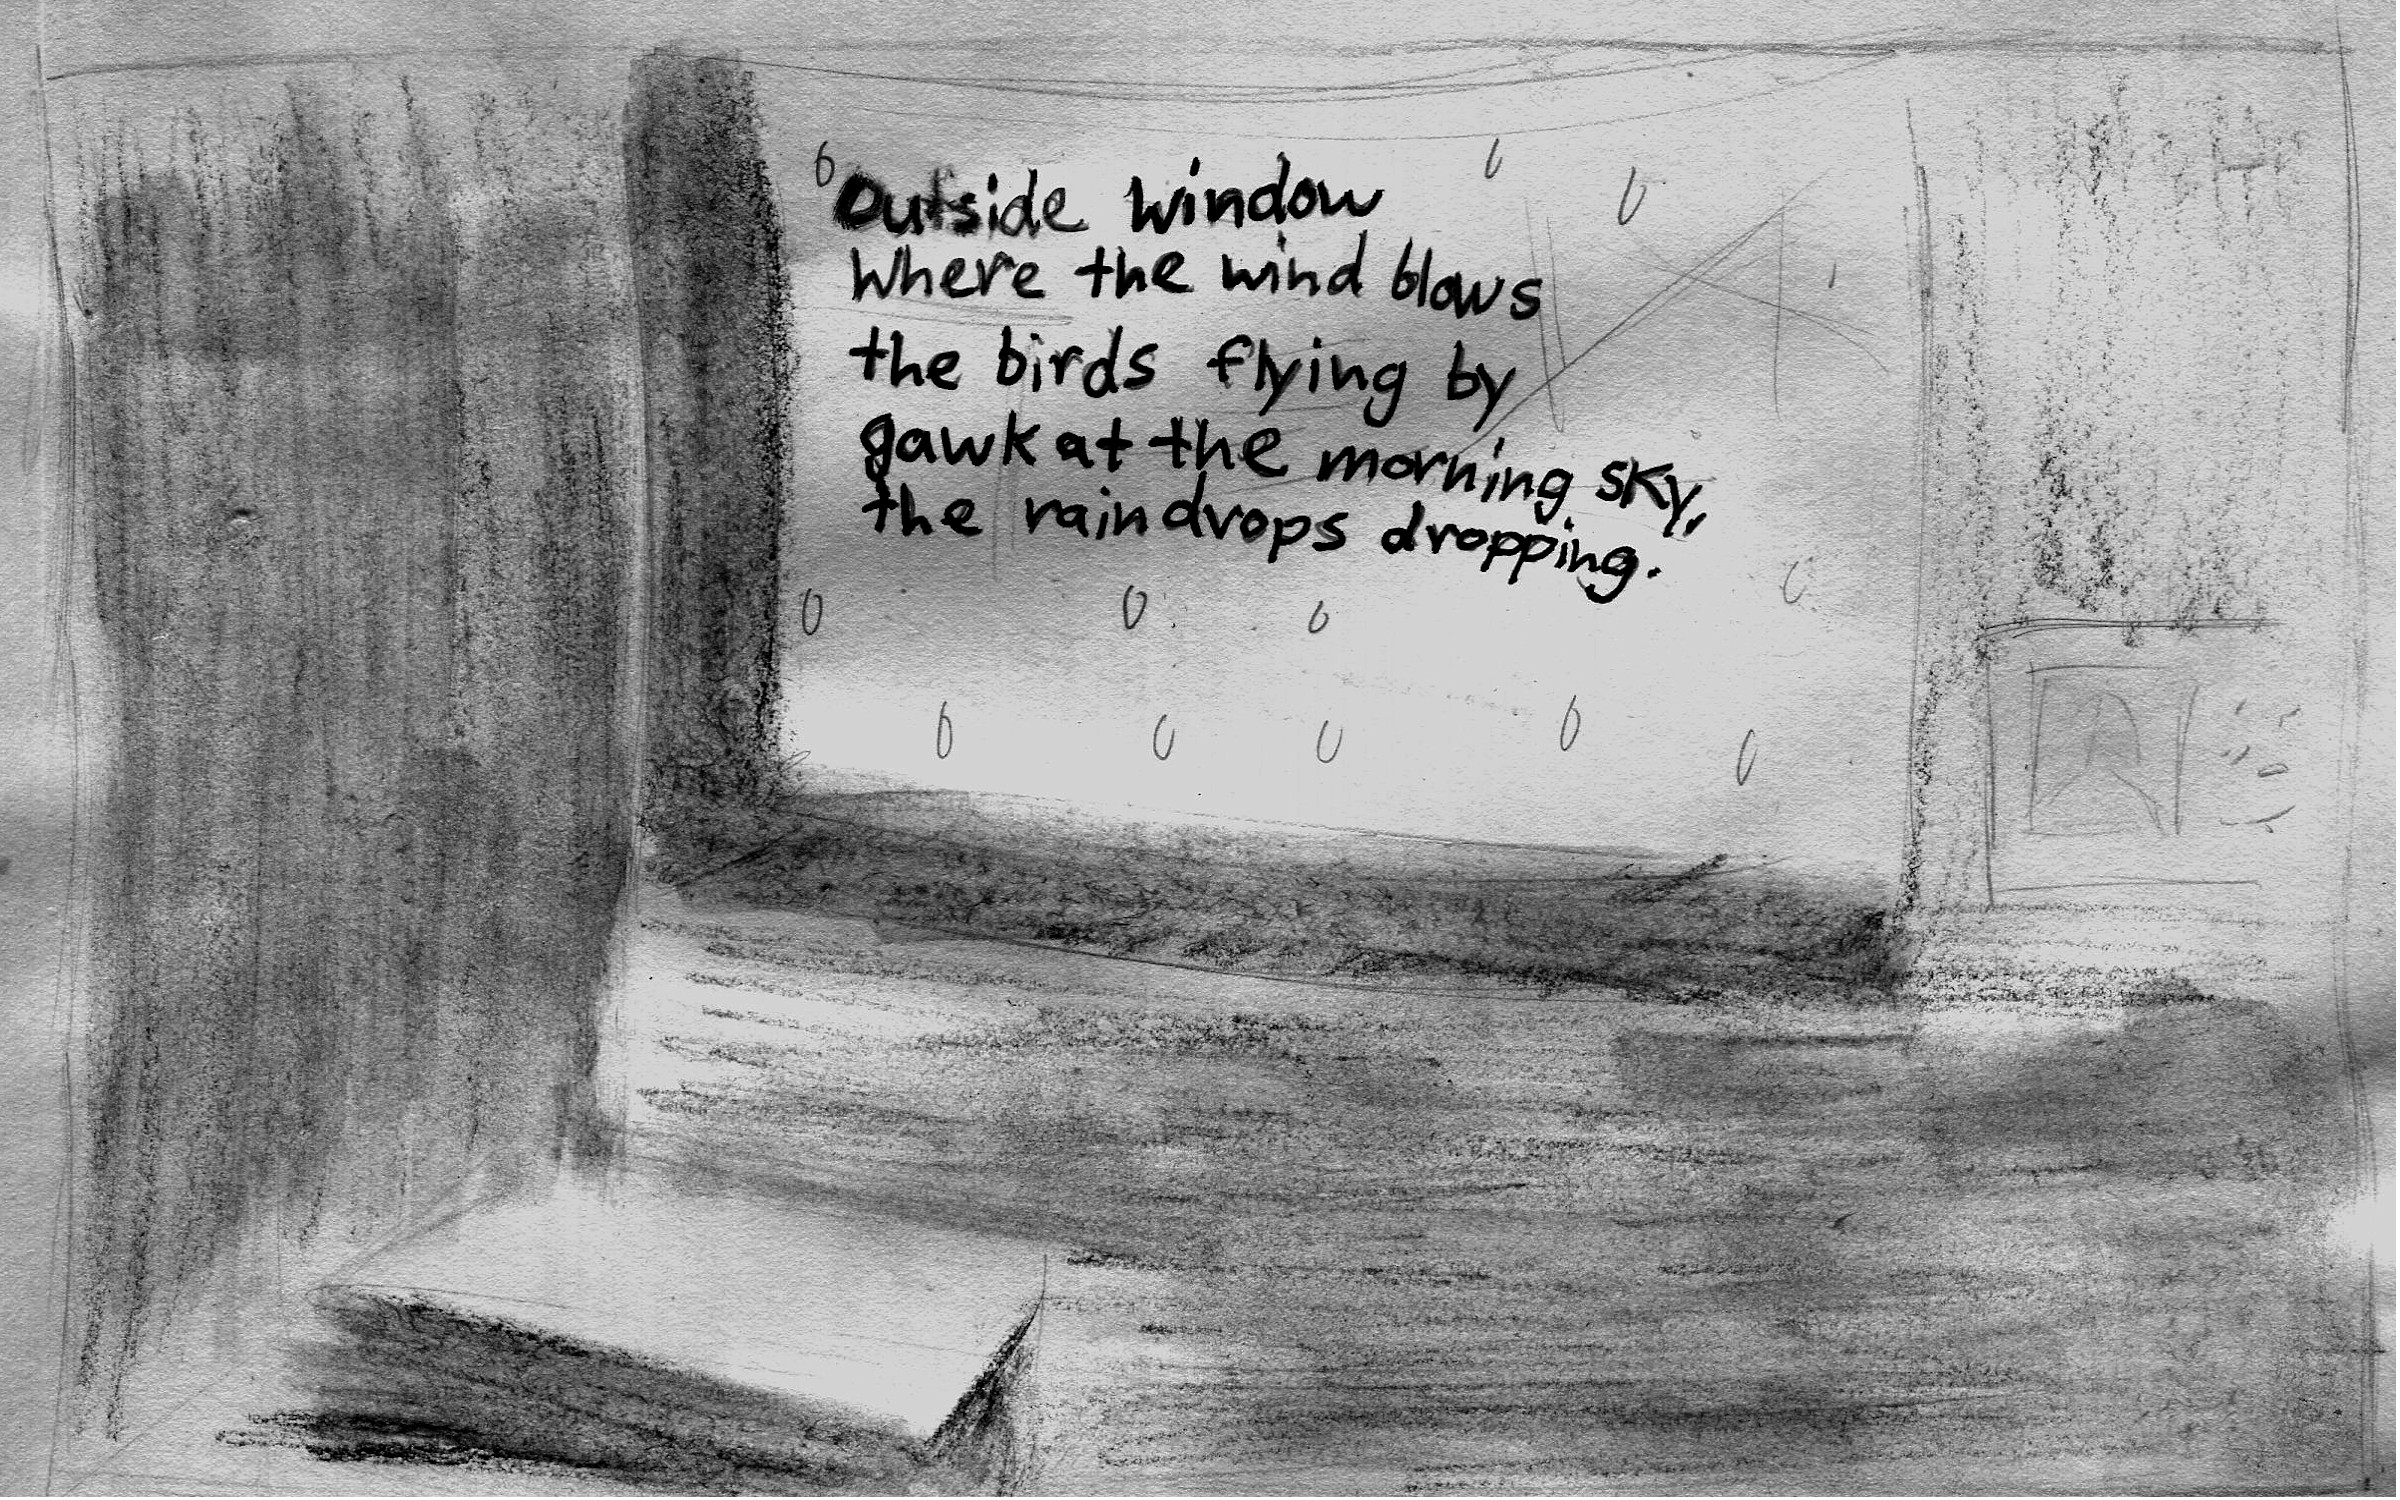 Outside window
Where the wind blows
the birds flying by
gawk at the morning sky,
the raindrops dropping.